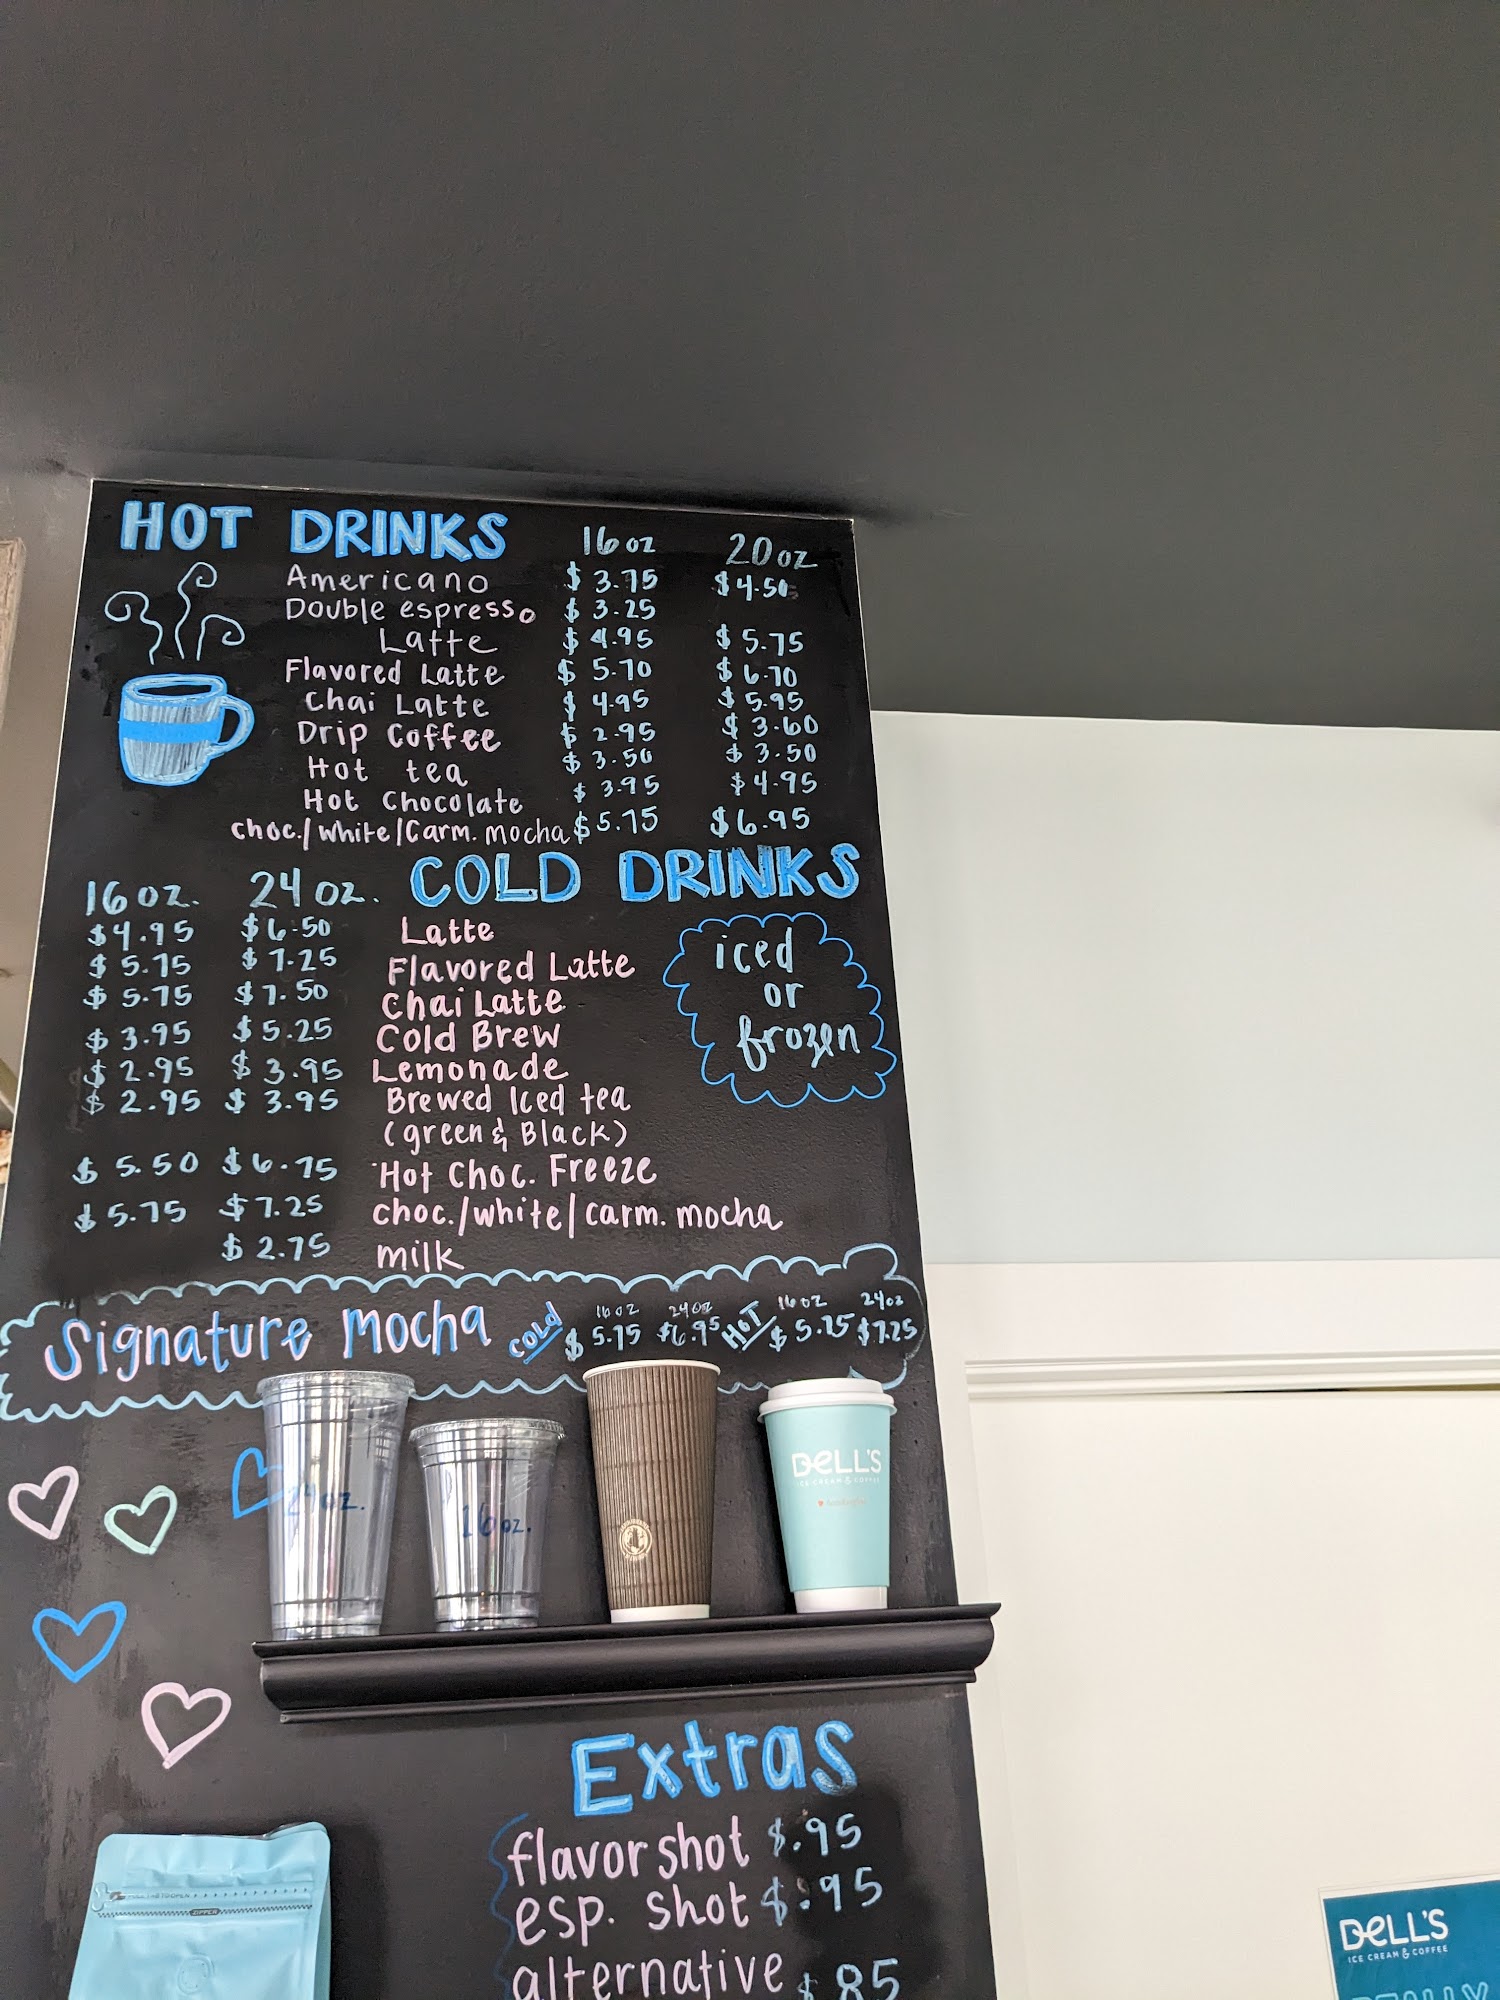 HOT DRINKS 16 oz 20 oz
Americano $3.75 $4.50
Double espresso $3.25
Latte $4.95 $5.75
Flavored Latte $5.70 $6.70
Chai Latte $4.95 $5.95
Drip Coffee $2.95 $3.60
Hot tea $3.50 $3.50
Hot Chocolate $3.95 $4.95
choc./white/Carm. mocha $5.75 $6.95
16 oz. 24 oz. COLD DRINKS
$4.95 $6.50 Latte
$5.75 $7.25 Flavored Latte
$5.75 $7.50 Chai Latte
$3.95 $5.25 Cold Brew
$2.95 $3.95 Lemonade
$2.95 $3.95 Brewed Iced tea
(green & Black)
$5.50 $6.75 Hot Choc. Freeze
$5.75 $7.25 choc./white/carm. mocha
$2.75 milk
iced
or
frozen
Signature Mocha COLD 16 oz $5.75 24 oz $6.95 HOT 16 oz $5.75 24 oz $7.25
24 oz.
16 oz.
DELL'S
ICE CREAM & COFFEE
Extras
flavor shot $.95
esp. shot $.95
alternative $.85
ZIPPER
DELL'S
ICE CREAM & COFFEE